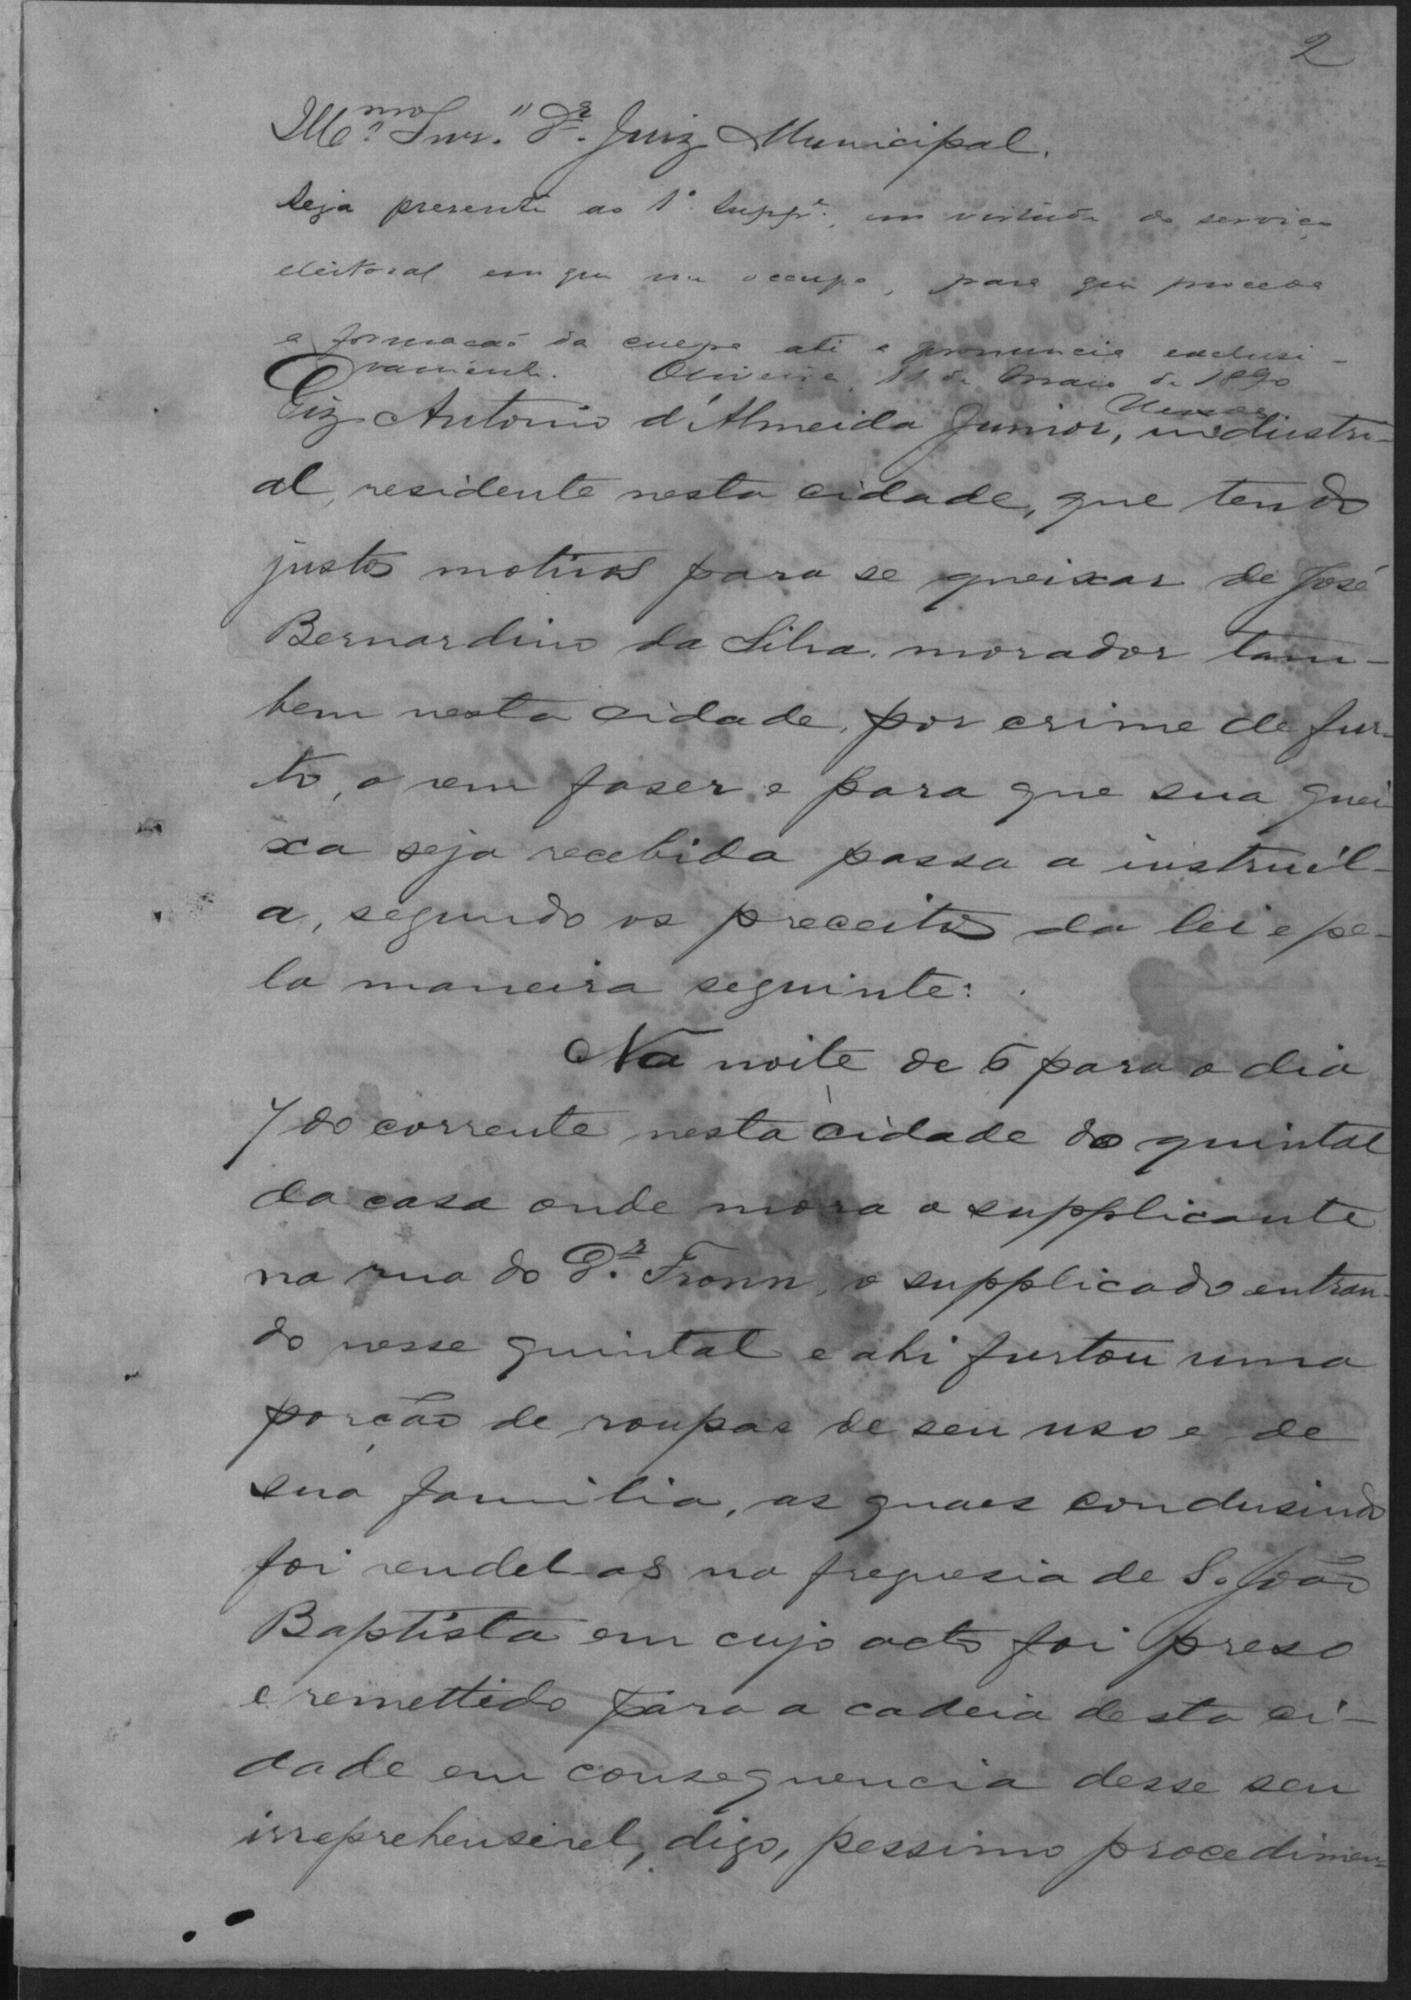 2
Ill.mo Snr. Dr. Juiz Municipal.
Seja presente ao 1º Suppe. em virtude do serviço
eleitoral em que me occupo, para que proceda
a formação da culpa até a pronuncia exclusi-
vamente. Oliveira, 11 de Maio de 1890
Diz Antonio d'Almeida Junior, industri-
al, residente nesta cidade, que tendo
justos motivos para se queixar de José
Bernardino da Silva, morador tam-
bem nesta cidade, por crime de fur-
to, o vem faser, e para que sua quei-
xa seja recebida passa a instruil-
a, segundo os preceitos da lei e pe-
la maneira seguinte:
Na noite de 6 para o dia
7 do corrente nesta cidade do quintal
da casa onde mora o supplicante
na rua do Dr. , o supplicado entran-
do nesse quintal e ahi furtou uma
porção de roupas de seu uso e de
sua familia, as quaes condusindo
foi vendel-as na freguesia de S. João
Baptista em cujo acto foi preso
e remettido para a cadeia desta ci-
dade em consequencia desse seu
irreprehensivel, digo, pessimo procedimen-